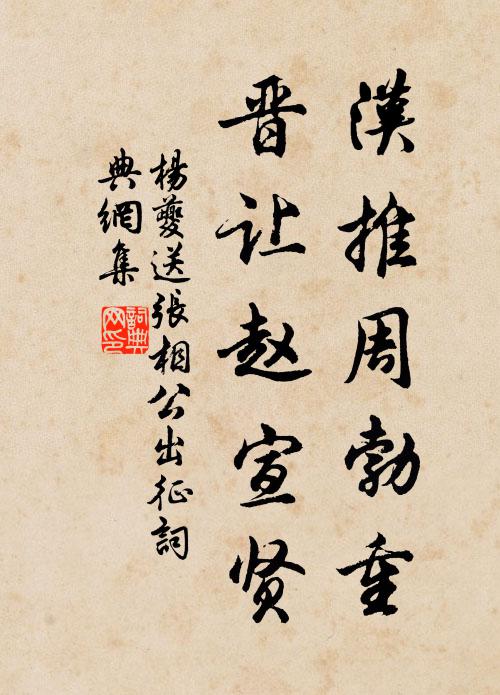 漢推周勃重
晋让赵宣贤
楊夔送張相公出征詞
典網集
詞典网印